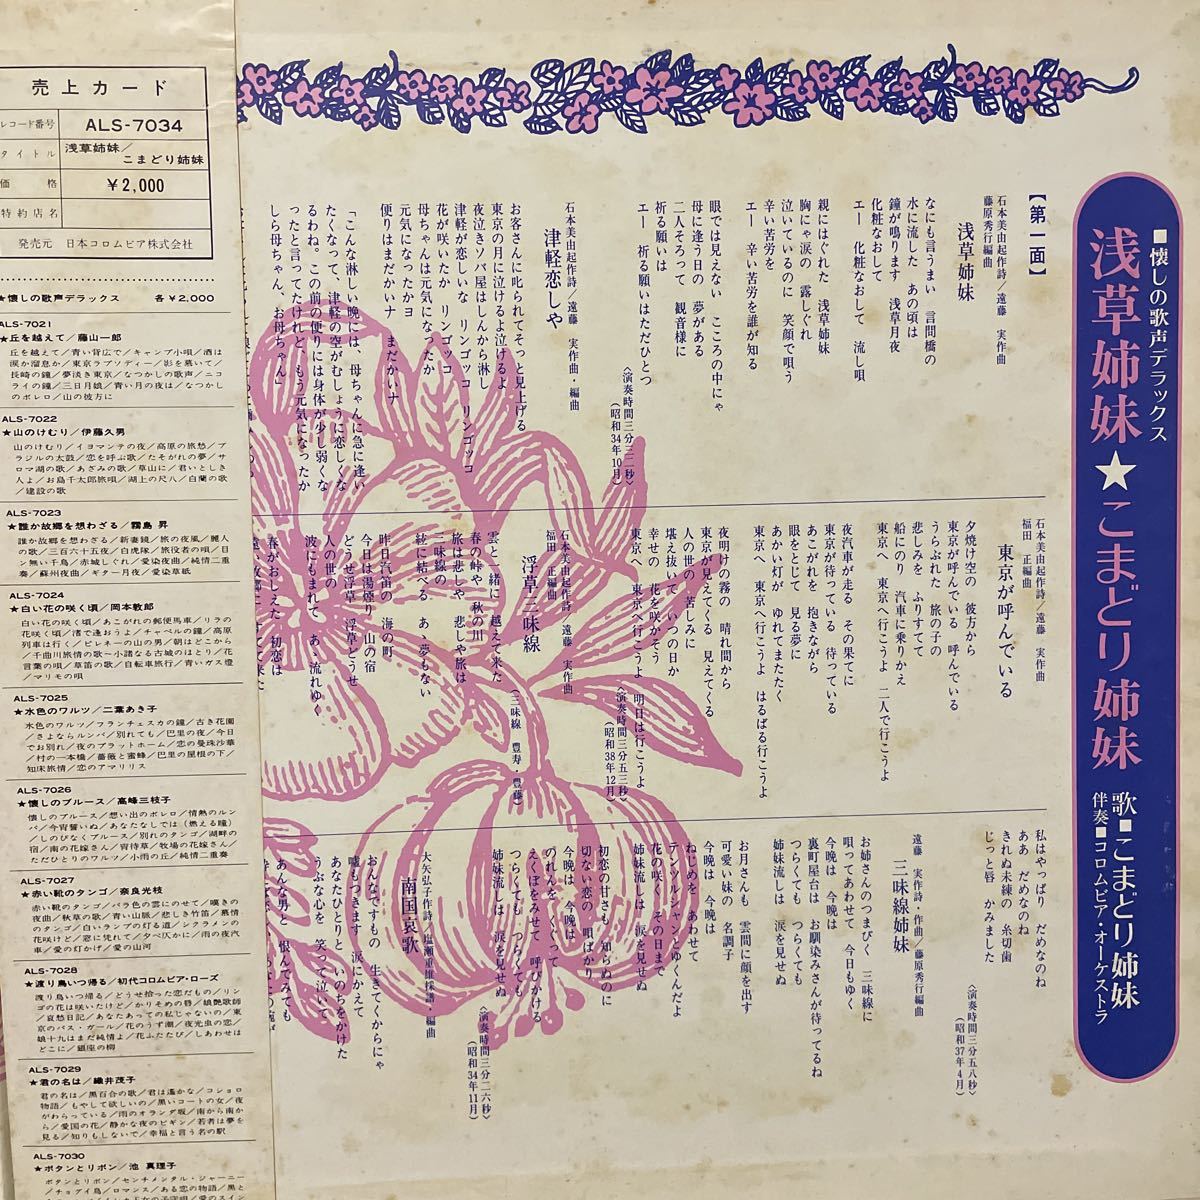 売上カード
レコード番号 ALS-7034
タイトル 浅草姉妹/
こまどり姉妹
価格 ¥2,000
特約店名
発売元 日本コロムビア株式会社
★懐しの歌声デラックス 各¥2,000
ALS-7021
★丘を越えて/藤山一郎
丘を越えて/青い背広で/キャンプ小唄/酒は
涙か溜息か/東京ラプソディー/影を慕いて/
長崎の鐘/夢淡き東京/なつかしの歌声/ニコ
ライの鐘/三日月娘/青い月の夜は/なつかし
のボレロ/山の彼方に
ALS-7022
★山のけむり/伊藤久男
山のけむり/イヨマンテの夜/高原の旅愁/ブ
ラジルの太鼓/恋を呼ぶ歌/たそがれの夢/サ
ロマ湖の歌/あざみの歌/草山に/君いとしき
人よ/お島千太郎旅唄/湖上の尺八/白蘭の歌
/建設の歌
ALS-7023
★誰か故郷を想わざる/霧島 昇
誰か故郷を想わざる/新妻鏡/旅の夜風/麗人
の歌/三百六十五夜/白虎隊/旅役者の唄/目
ン無い千鳥/赤城しぐれ/愛染夜曲/純情二重
奏/蘇州夜曲/ギター月夜/愛染草紙
ALS-7024
★白い花の咲く頃/岡本敦郎
白い花の咲く頃/あこがれの郵便馬車/リラの
花咲く頃/渚で逢おうよ/チャペルの鐘/高原
列車は行く/ピレネーの山の男/朝はどこから
/千曲川旅情の歌〜小諸なる古城のほとり/花
言葉の唄/草笛の歌/自転車旅行/青いガス燈
/マリモの唄
ALS-7025
★水色のワルツ/二葉あき子
水色のワルツ/フランチェスカの鐘/古き花園
/さよならルンバ/別れても/巴里の夜/今日
でお別れ/夜のプラットホーム/恋の曼珠沙華
/村の一本橋/薔薇と蜜蜂/巴里の屋根の下/
知床旅情/恋のアマリリス
ALS-7026
★懐しのブルース/高峰三枝子
懐しのブルース/想い出のボレロ/情熱のルン
バ/今宵誓いぬ/あなたなしでは(燃える瞳)
/しのびなくブルース/別れのタンゴ/湖畔の
宿/南の花嫁さん/宵待草/牧場の花嫁さん/
ただひとりのワルツ/小雨の丘/純情二重奏
ALS-7027
★赤い靴のタンゴ/奈良光枝
赤い靴のタンゴ/バラ色の雲にのせて/嘆きの
夜曲/秋草の歌/青い山脈/悲しき竹笛/慕情
のタンゴ/白いランプの灯る道/シクラメンの
花咲けど/窓に凭れて/夕べ仄かに/雨の夜汽
車/愛の灯かげ/愛の山河
ALS-7028
★渡り鳥いつ帰る/初代コロムビア・ローズ
渡り鳥いつ帰る/どうせ拾った恋だもの/リン
ゴの花は咲いたけど/かりそめの唇/娘艶歌師
/哀愁日記/あなたあっての私じゃないの/東
京のバス・ガール/花のうず潮/夜光虫の恋/
娘十九はまだ純情よ/花ふたたび/しあわせは
どこに/銀座の柳
ALS-7029
★君の名は/織井茂子
君の名は/黒百合の歌/君は遥かな/コショロ
物語/もやして欲しいの/黒いコートの女/夜
がわらっている/雨のオランダ坂/南から南か
ら/愛国の花/静かな夜のビギン/若者は夢を
見る/知りもしないで/幸福と言う名の駅
ALS-7030
★ボタンとリボン/池 真理子
ボタンとリボン/センチメンタル・ジャーニー
/チョグイ鳥/ロマンス/ある恋の物語/黒と
■懐しの歌声デラックス
浅草姉妹★こまどり姉妹
歌■こまどり姉妹
伴奏■コロムビア・オーケストラ
【第一面】
石本美由起作詩/遠藤 実作曲
藤原秀行編曲
浅草姉妹
なにも言うまい 言問橋の
水に流した あの頃は
鐘が鳴ります 浅草月夜
化粧なおして 流し唄
エー 化粧なおして 流し唄
親にはぐれた 浅草姉妹
胸にゃ涙の 露しぐれ
泣いているのに 笑顔で唄う
辛い苦労を
エー 辛い苦労を誰が知る
眼では見えない こころの中にゃ
母に逢う日の 夢がある
二人そろって 観音様に
祈る願いは
エー 祈る願いはただひとつ
〈演奏時間三分三二秒〉
(昭和34年10月)
石本美由起作詩/遠藤 実作曲・編曲
津軽恋しや
お客さんに叱られてそっと見上げる
東京の月に泣けるよ泣けるよ
夜泣きソバ屋はしんから淋し
津軽が恋しいな リンゴッコ リンゴッコ
花が咲いたか リンゴッコ
母ちゃんは元気になったか
元気になったかヨ
便りはまだかいナ まだかいナ
「こんな淋しい晩には、母ちゃんに急に逢い
たくなって、津軽の空がむしょうに恋しくな
るわね。この前の便りには身体が少し弱くな
ったと言ってたけれど、もう元気になったか
しら母ちゃん、お母ちゃん」
石本美由起作詩/遠藤 実作曲
福田 正編曲
東京が呼んでいる
夕焼け空の 彼方から
東京が呼んでいる 呼んでいる
うらぶれた 旅の子の
悲しみを ふりすてて
船にのり 汽車に乗りかえ
東京へ 東京へ行こうよ 二人で行こうよ
夜汽車が走る その果てに
東京が待っている 待っている
あこがれを 抱きながら
眼をとじて 見る夢に
あかい灯が ゆれてまたたく
東京へ 東京へ行こうよ はるばる行こうよ
夜明けの霧の 晴れ間から
東京が見えてくる 見えてくる
人の世の 苦しみに
堪え抜いて いつの日か
幸せの 花を咲かそう
東京へ 東京へ行こうよ 明日は行こうよ
〈演奏時間三分五三秒〉
(昭和38年12月)
石本美由起作詩/遠藤 実作曲
福田 正編曲
浮草三味線
(三味線 豊寿・豊藤)
雲と一緒に 越えて来た
春の峠や 秋の川
旅は悲しや 悲しや旅は
三味線の
絃に結べる あゝ夢もない
昨日汽笛の 海の町
今日は湯煙り 山の宿
どうせ浮草 浮草どうせ
人の世の
波にもまれて あゝ流れゆく
春がおしえた 初恋は
私はやっぱり だめなのね
ああ だめなのね
きれぬ未練の 糸切歯
じっと唇 かみました
〈演奏時間三分五八秒〉
(昭和37年4月)
遠藤 実作詩・作曲/藤原秀行編曲
三味線姉妹
お姉さんのつまびく 三味線に
唄ってあわせて 今日もゆく
今晩は 今晩は
裏町屋台は お馴染みさんが待ってるね
つらくても つらくても
姉妹流しは 涙を見せぬ
お月さんも 雲間に顔を出す
可愛い妹の 名調子
今晩は 今晩は
ねじめを あわせて
テンツルシャンとゆくんだよ
花の咲く その日まで
姉妹流しは 涙を見せぬ
初恋の甘さも 知らぬのに
切ない恋の 唄ばかり
今晩は 今晩は
のれんを くぐって
えくぼをみせて 呼びかける
つらくても つらくても
姉妹流しは 涙を見せぬ
〈演奏時間三分二六秒〉
(昭和34年11月)
大矢弘子作詩/塩瀬重雄採譜・編曲
南国哀歌
おんなですもの 生きてくからにゃ
嘘もつきます 涙にかえて
あなたひとりと いのちをかけた
うぶな心を 笑って泣いて
あんな男と 恨んでみても